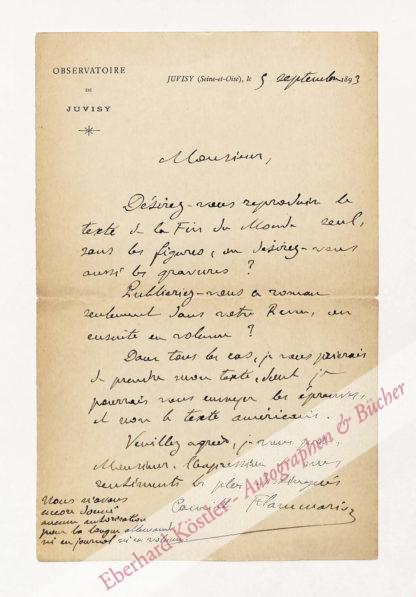 OBSERVATOIRE
DE
JUVISY
JUVISY (Seine-et-Oise), le 5 septembre 1893
Monsieur,
Désirez-vous reproduire le
texte de la Fin du Monde seul,
sans les figures, ou désirez-vous
aussi les gravures ?
Publieriez-vous ce roman
seulement dans votre Revue, ou
ensuite en volume ?
Dans tous les cas, je vous prierais
de prendre mon texte, dont je
pourrais vous envoyer les épreuves,
et non le texte américain.
Veuillez agréer, je vous prie,
Monsieur, l'expression de mes
sentiments les plus distingués
Camille Flammarion
Nous n'avons
encore donné
aucune autorisation
pour la langue allemande
ni en journal ni en volume.
Eberhard Köstler - Autographen & Bücher